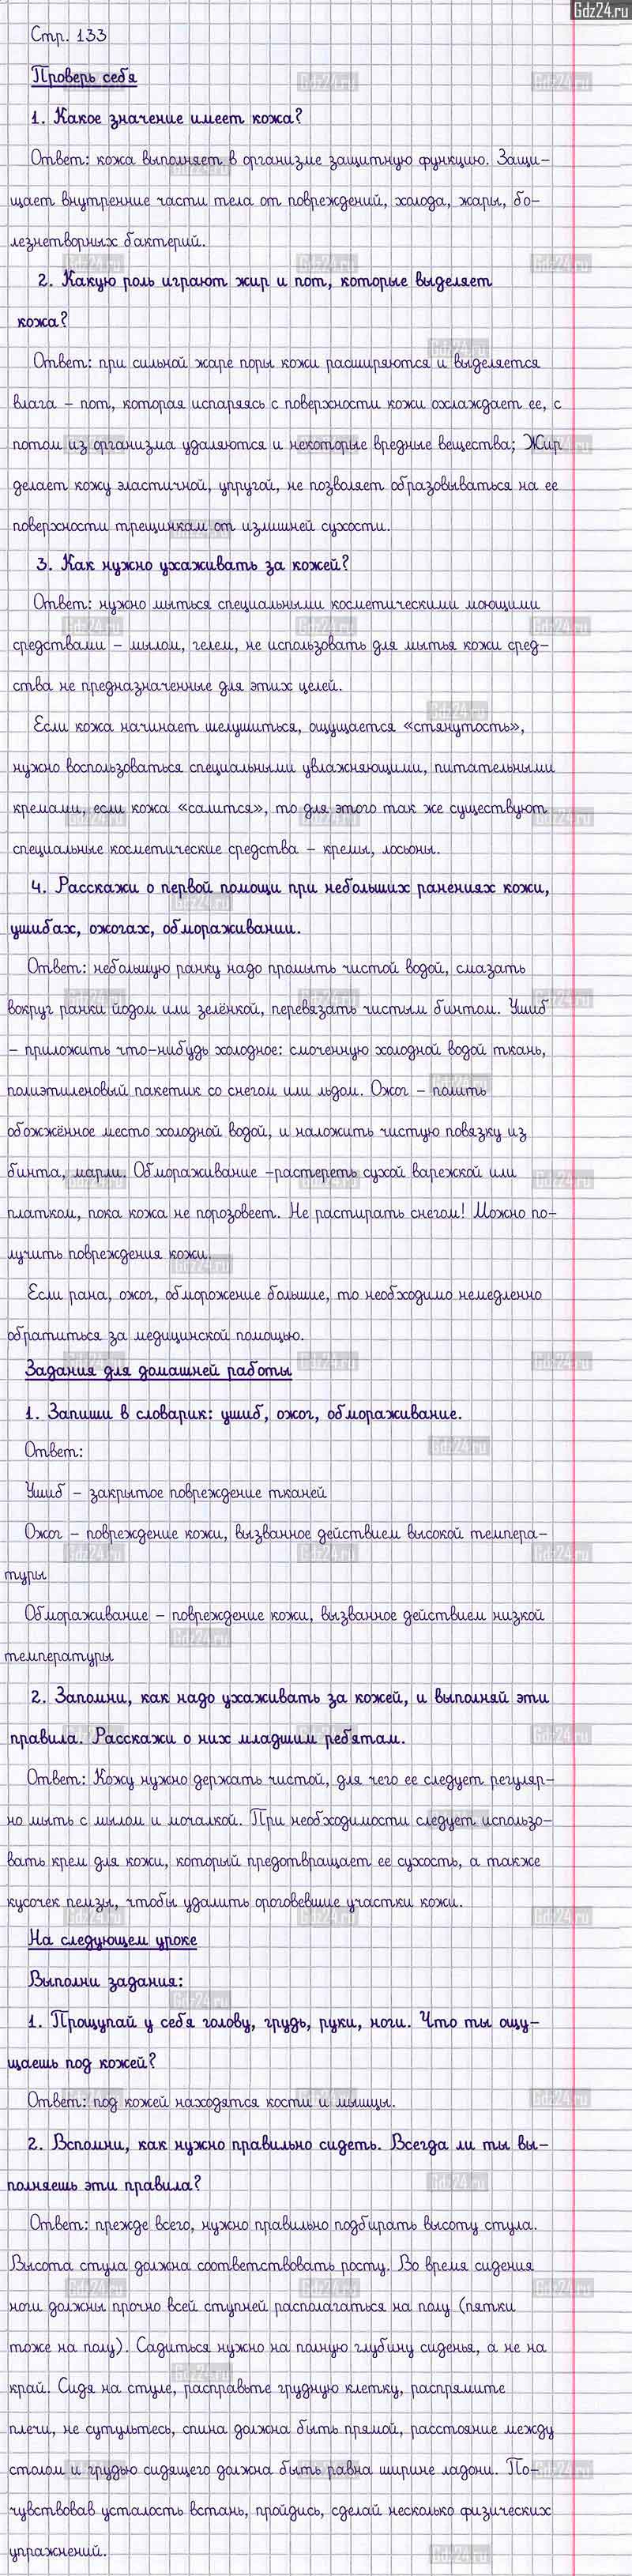 Gdz24.ru
Стр. 133
Проверь себя
1. Какое значение имеет кожа?
Ответ: кожа выполняет в организме защитную функцию. Защи-
щает внутренние части тела от повреждений, холода, жары, бо-
лезнетворных бактерий.
2. Какую роль играют жир и пот, которые выделяет
кожа?
Ответ: при сильной жаре поры кожи расширяются и выделяется
влага – пот, которая испаряясь с поверхности кожи охлаждает ее, с
потом из организма удаляются и некоторые вредные вещества; Жир
делает кожу эластичной, упругой, не позволяет образовываться на ее
поверхности трещинкам от излишней сухости.
3. Как нужно ухаживать за кожей?
Ответ: нужно мыться специальными косметическими моющими
средствами – мылом, гелем, не использовать для мытья кожи сред-
ства не предназначенные для этих целей.
Если кожа начинает шелушиться, ощущается «стянутость»,
нужно воспользоваться специальными увлажняющими, питательными
кремами, если кожа «салится», то для этого так же существуют
специальные косметические средства – кремы, лосьоны.
4. Расскажи о первой помощи при небольших ранениях кожи,
ушибах, ожогах, обмораживании.
Ответ: небольшую ранку надо промыть чистой водой, смазать
вокруг ранки йодом или зелёнкой, перевязать чистым бинтом. Ушиб
– приложить что-нибудь холодное: смоченную холодной водой ткань,
полиэтиленовый пакетик со снегом или льдом. Ожог – полить
обожжённое место холодной водой, и наложить чистую повязку из
бинта, марли. Обмораживание –растереть сухой варежкой или
платком, пока кожа не порозовеет. Не растирать снегом! Можно по-
лучить повреждения кожи.
Если рана, ожог, обморожение большие, то необходимо немедленно
обратиться за медицинской помощью.
Задания для домашней работы
1. Запиши в словарик: ушиб, ожог, обмораживание.
Ответ:
Ушиб – закрытое повреждение тканей
Ожог – повреждение кожи, вызванное действием высокой темпера-
туры
Обмораживание – повреждение кожи, вызванное действием низкой
температуры
2. Запомни, как надо ухаживать за кожей, и выполняй эти
правила. Расскажи о них младшим ребятам.
Ответ: Кожу нужно держать чистой, для чего ее следует регуляр-
но мыть с мылом и мочалкой. При необходимости следует использо-
вать крем для кожи, который предотвращает ее сухость, а также
кусочек пемзы, чтобы удалить ороговевшие участки кожи.
На следующем уроке
Выполни задания:
1. Прощупай у себя голову, грудь, руки, ноги. Что ты ощу-
щаешь под кожей?
Ответ: под кожей находятся кости и мышцы.
2. Вспомни, как нужно правильно сидеть. Всегда ли ты вы-
полняешь эти правила?
Ответ: прежде всего, нужно правильно подбирать высоту стула.
Высота стула должна соответствовать росту. Во время сидения
ноги должны прочно всей ступней располагаться на полу (пятки
тоже на полу). Садиться нужно на полную глубину сиденья, а не на
край. Сидя на стуле, расправьте грудную клетку, распрямите
плечи, не сутультесь, спина должна быть прямой, расстояние между
столом и грудью сидящего должна быть равна ширине ладони. По-
чувствовав усталость встань, пройдись, сделай несколько физических
упражнений.